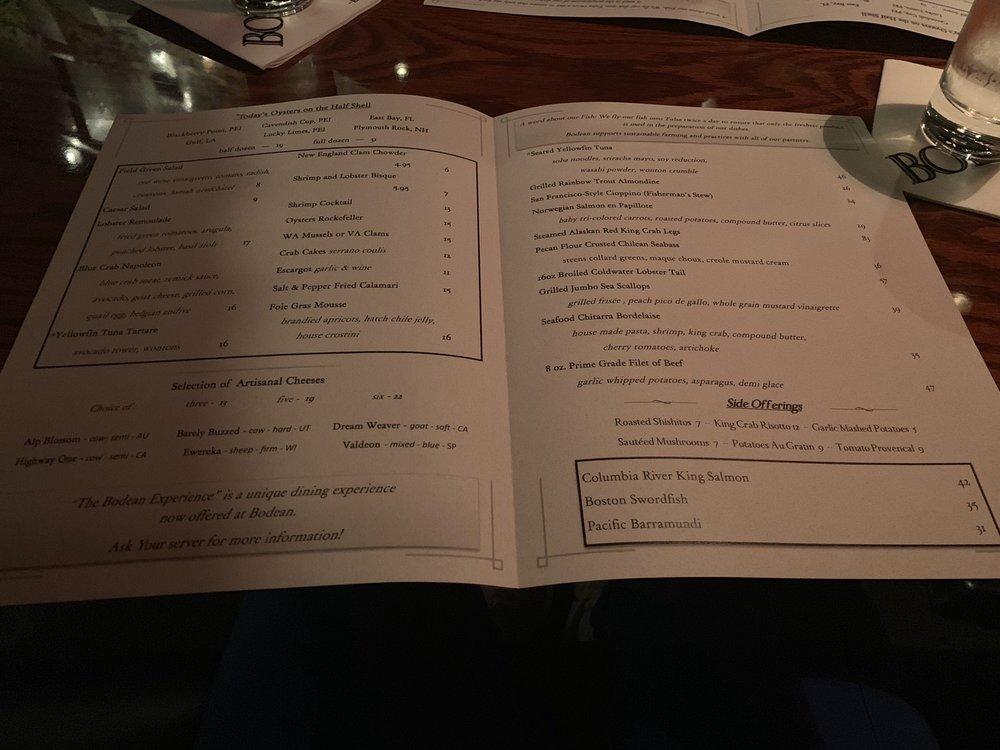 "Today's Oysters on the Half Shell
Blackberry Point, PEI Cavendish Cup, PEI East Bay, FL
Gulf, LA Lucky Limes, PEI Plymouth Rock, NH
half dozen — 19 full dozen —
Field Green Salad
red wine vinaigrette, tomato, radish,
croutons, 8
Caesar Salad 9
Lobster Remoulade
fried green tomatoes, arugula,
poached lobster, basil aioli 17
Blue Crab Napoleon
blue crab meat, remick sauce,
avocado, goat cheese, grilled corn,
quail egg, belgian endive 16
*Yellowfin Tuna Tartare
avocado tower, wontons 16
New England Clam Chowder
4.95 6
Shrimp and Lobster Bisque
5.95 7
Shrimp Cocktail 13
Oysters Rockefeller 15
WA Mussels or VA Clams 15
Crab Cakes serrano coulis 12
Escargot garlic & wine 11
Salt & Pepper Fried Calamari 15
Foie Gras Mousse
brandied apricots, hatch chile jelly,
house crostini 16
Selection of Artisanal Cheeses
Choice of: three - 13 five - 19 six - 22
Alp Blossom - cow- semi - AU Barely Buzzed - cow - hard - UT Dream Weaver - goat - soft - CA
Highway One - cow semi - CA Ewereka - sheep - firm - WI Valdeon - mixed - blue - SP
"The Bodean Experience" is a unique dining experience
now offered at Bodean.
Ask Your server for more information!
A word about our Fish: We fly our fish into Tulsa twice a day to ensure that only the freshest product
is used in the preparation of our dishes.
Bodean supports sustainable farming and practices with all of our partners.
*Seared Yellowfin Tuna
soba noodles, sriracha mayo, soy reduction,
wasabi powder, wonton crumble 46
Grilled Rainbow Trout Almondine 26
San Francisco-Style Cioppino (Fisherman's Stew)
Norwegian Salmon en Papillote
baby tri-colored carrots, roasted potatoes, compound butter, citrus slices
Steamed Alaskan Red King Crab Legs
Pecan Flour Crusted Chilean Seabass
steens collard greens, maque choux, creole mustard cream
16oz Broiled Coldwater Lobster Tail
Grilled Jumbo Sea Scallops
grilled frisée , peach pico de gallo, whole grain mustard vinaigrette 39
Seafood Chitarra Bordelaise
house made pasta, shrimp, king crab, compound butter,
cherry tomatoes, artichoke 35
8 oz. Prime Grade Filet of Beef
garlic whipped potatoes, asparagus, demi glace 47
Side Offerings
Roasted Shishitos 7 - King Crab Risotto 12 - Garlic Mashed Potatoes 5
Sautéed Mushrooms 7 - Potatoes Au Gratin 9 - Tomato Provencal 9
Columbia River King Salmon 42
Boston Swordfish 35
Pacific Barramundi 31
BO
BO